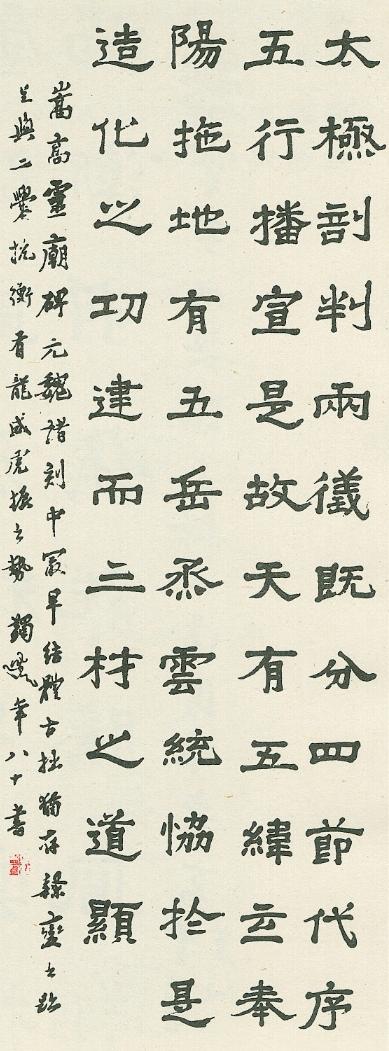 太極剖判兩儀既分四節代序
五行播宣是故天有五緯奉
陽拖地有五岳烝雲統恊扵是
造化之功建而三材之道顯
嵩高靈廟碑元魏諸刻中㝡早結體古拙猶存隸變之跡
足與二爨抗衡有龍威虎振之勢 蠲年八十書